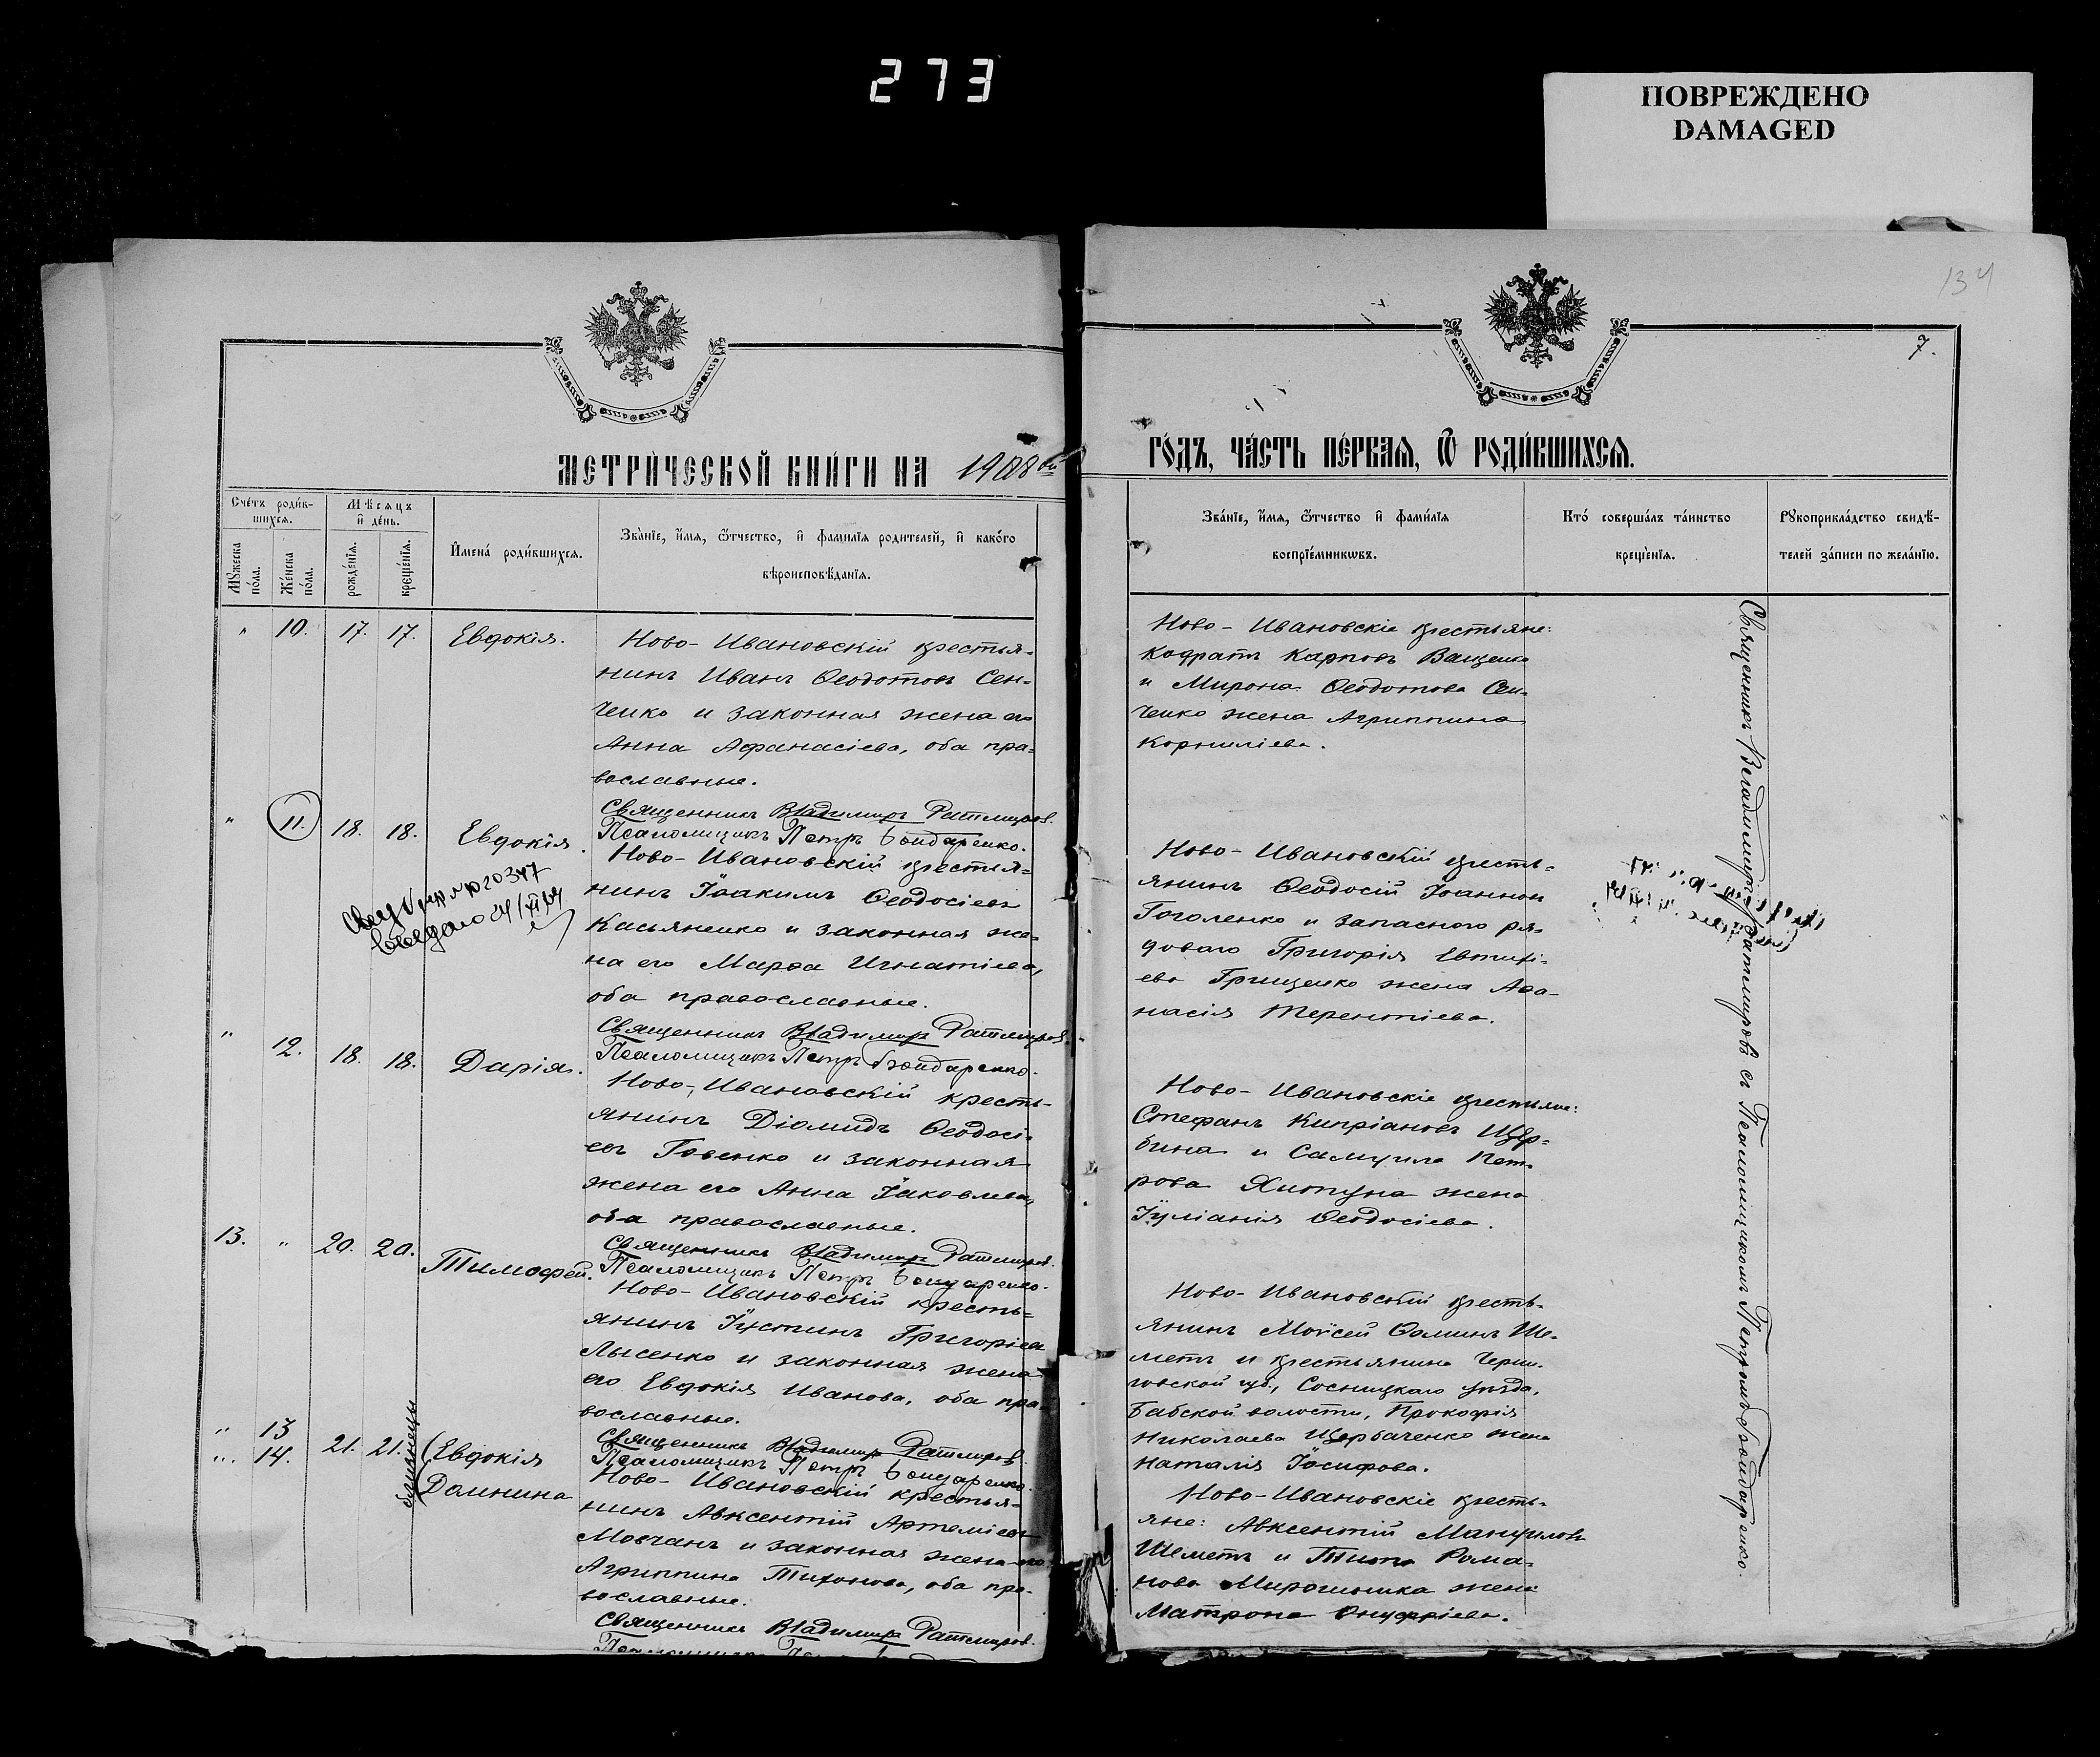 273
ПОВРЕЖДЕНО
DAMAGED
134
7.
МЕТРИ́ЧЕСКОЙ КНИ́ГИ НА 1908ой
ГО́ДЪ, ЧА́СТЬ ПЕ́РВАЯ, Ѿ РОДИ́ВШИХСЯ.
Сче́тъ роди́в-
шихся.
Мѣсяцъ
и̂ де́нь.
Мꙋ́жеска по́ла.
Же́нска по́ла.
рожде́нїя.
креще́нїя.
И̂мена́ роди́вшихся.
Зва́нїе, и̂мя, ѻ̂тчество, и̂ фами́лїя роди́телей, и̂ како́го
вѣроисповѣ́данїя.
Зва́нїе, и̂мя, ѻ̂тчество и̂ фами́лїя
воспрїе́мникѡвъ.
Кто́ соверша́лъ та́инство
креще́нїя.
Рꙋкоприкла́дство свидѣ́-
телей за́писи по жела́нїю.
" 10. 17. 17. Евдокія.
Ново-Ивановскій крестья-
нинъ Иванъ Ѳеодотовъ Сен-
ченко и законная жена его
Анна Афанасіева, оба пра-
вославные.
Священникъ Владимиръ Ратмировъ.
Псаломщикъ Петръ Бондаренко.
Ново-Ивановскіе крестьяне:
Кодратъ Карповъ Ващенко
и Мирона Ѳеодотова Сен-
ченко жена Агриппина
Корниліева.
" 11. 18. 18. Евдокія.
Ново-Ивановскій крестья-
нинъ Іоакимъ Ѳеодосіевъ
Касьяненко и законная же-
на его Марѳа Игнатіева,
оба православные.
Священникъ Владимиръ Ратмировъ.
Псаломщикъ Петръ Бондаренко.
Ново-Ивановскій кресть-
янинъ Ѳеодосій Іоанновъ
Гоголенко и запаснаго ря-
доваго Григорія Евтихі-
ева Грищенко жена Аѳа-
насія Терентіева.
" 12. 18. 18. Дарія.
Ново-Ивановскій кресть-
янинъ Діомидъ Ѳеодосі-
евъ Говенко и законная
жена его Анна Іаковлева,
оба православные.
Священникъ Владимиръ Ратмировъ.
Псаломщикъ Петръ Бондаренко.
Ново-Ивановскіе крестьяне:
Стефанъ Кипріановъ Щер-
бина и Самуила Пет-
рова Хитуна жена
Іуліанія Ѳеодосіева.
13. " 20. 20. Тимофей.
Ново-Ивановскій кресть-
янинъ Іустинъ Григоріевъ
Лысенко и законная жена
его Евдокія Иванова, оба пра-
вославные.
Священникъ Владимиръ Ратмировъ.
Псаломщикъ Петръ Бондаренко.
Ново-Ивановскій кресть-
янинъ Моѵсей Ѳоминъ Ше-
метъ и крестьянина Черни-
говской губ., Сосницкаго уѣзда,
Бабской волости, Прокофія
Николаева Щербаченко жена
Наталія Іосифова.
" 13 21. 21. Евдокія
" 14. Домнина
близнецы
Ново-Ивановскій крестья-
нинъ Авксентій Артеміевъ
Мовчанъ и законная жена его
Агриппина Тихонова, оба пра-
вославные.
Священникъ Владимиръ Ратмировъ.
Ново-Ивановскіе кресть-
яне: Авксентій Мануиловъ
Шеметъ и Тита Рома-
нова Мирошника жена
Матрона Онуфріева.
Священникъ Владимиръ Ратмировъ съ Псаломщикомъ Петромъ Бондаренко.